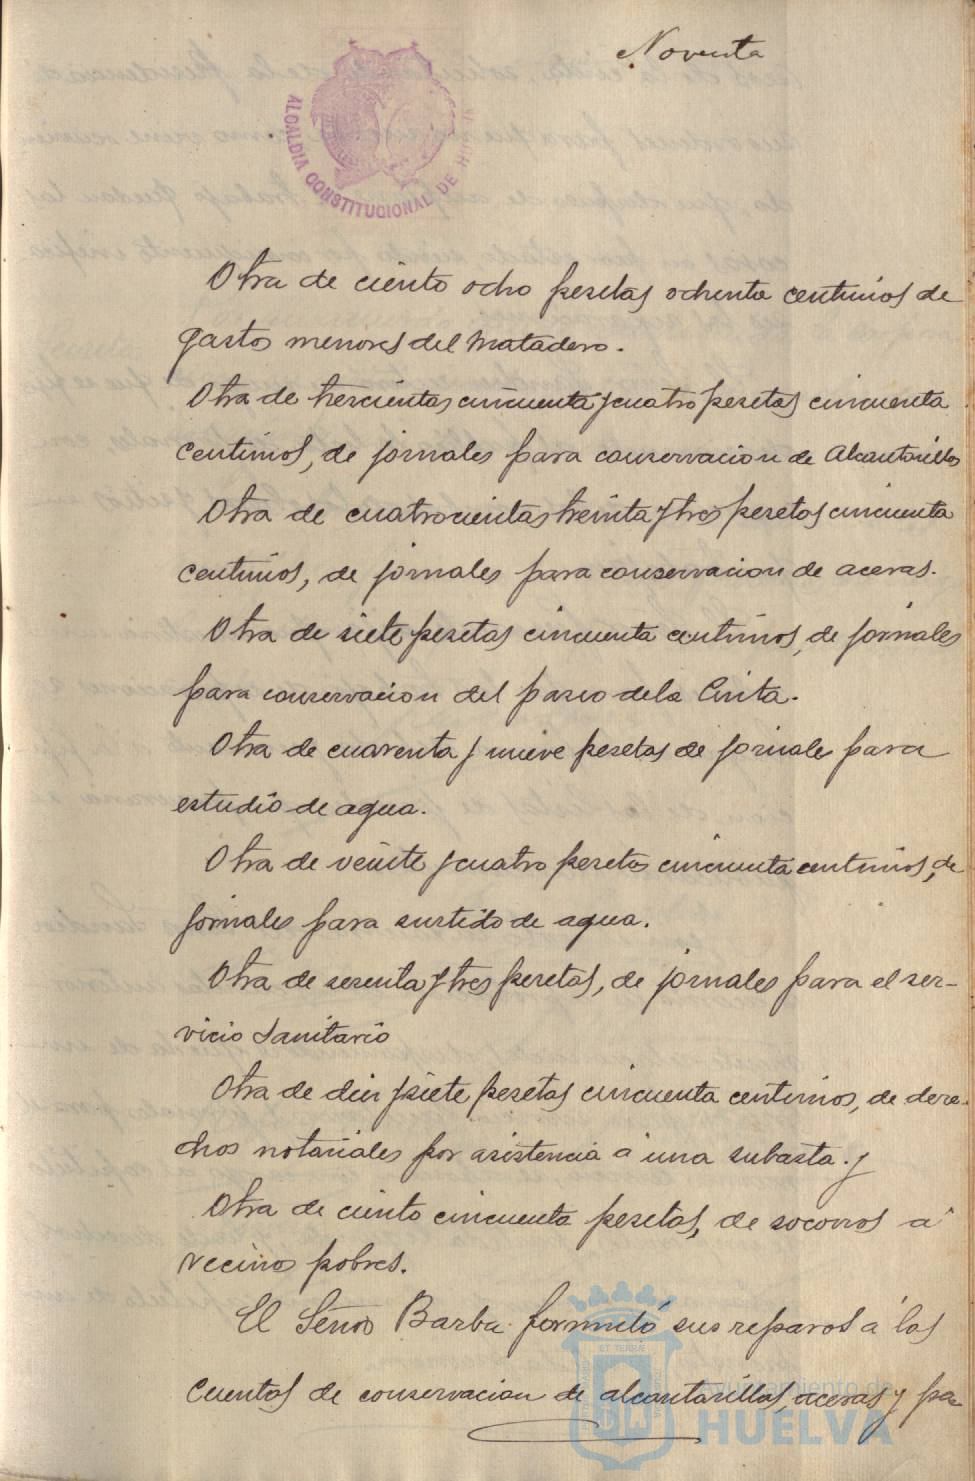 Noventa
ALCALDIA CONSTITUCIONAL DE HUELVA
Otra de ciento ocho pesetas ochenta centimos de
gastos menores del Matadero.
Otra de trescientas cincuenta y cuatro pesetas cincuenta
centimos, de jornales para conservacion de Alcantarillas
Otra de cuatrocientas treinta y tres pesetas cincuenta
centimos, de jornales para conservacion de aceras.
Otra de siete pesetas cincuenta centimos, de jornales
para conservacion del paseo de la Cinta.
Otra de cuarenta y nueve pesetas de jornales para
estudio de agua.
Otra de veinte y cuatro pesetas cincuenta centimos, de
jornales para surtido de agua.
Otra de sesenta y tres pesetas, de jornales para el ser-
vicio Sanitario
Otra de diez y siete pesetas cincuenta centimos, de dere-
chos notariales por asistencia á una subasta. y
Otra de ciento cincuenta pesetas, de socorros a
vecinos pobres.
El Señor Barba formuló sus reparos á las
cuentas de conservacion de alcantarillas, aceras y pa-
ET TERRÆ
Ayuntamiento de
HUELVA